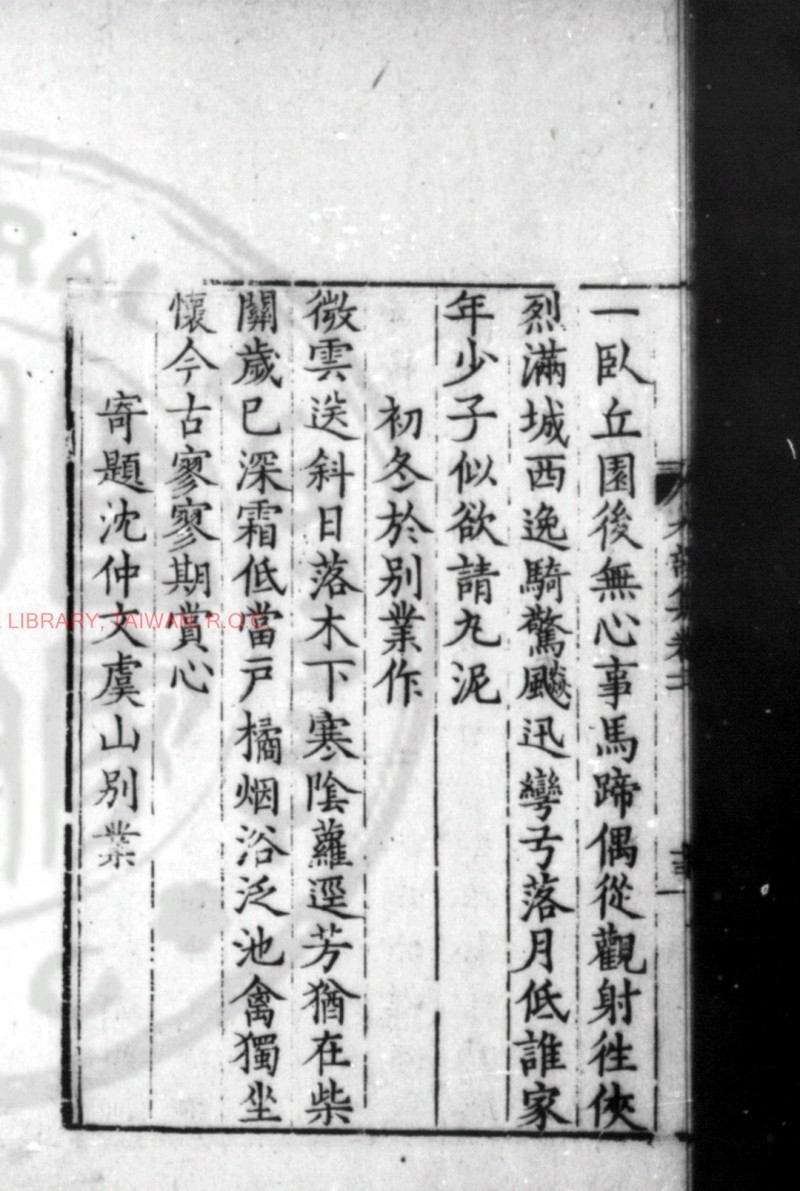 一臥丘園後無心事馬蹄偶從觀射徃俠
烈滿城西逸騎驚飈迅彎弓落月低誰家
年少子似欲請丸泥
初冬於別業作
微雲送斜日落木下寒陰蘿逕芳猶在柴
關歲已深霜低當戶橘烟浴泛池禽獨坐
懷今古寥寥期賞心
寄題沈仲文虞山別業
LIBRARY, TAIWAN R.O.C